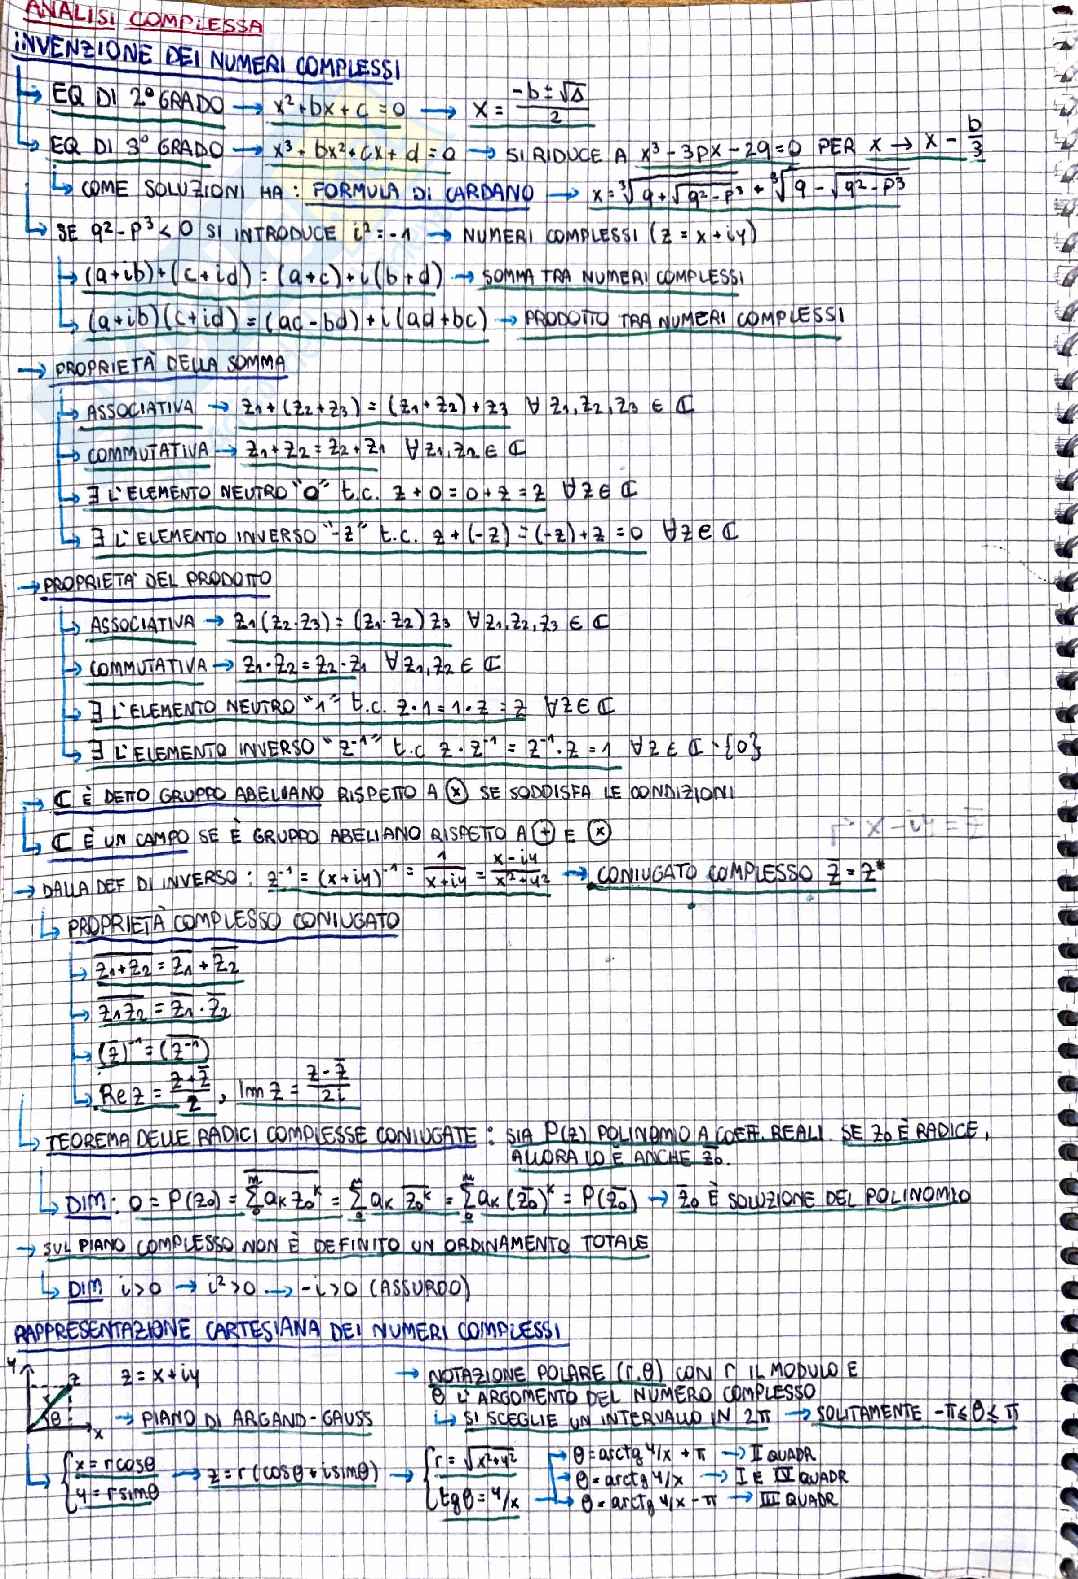 ANALISI COMPLESSA
INVENZIONE DEI NUMERI COMPLESSI
→ EQ DI 2° GRADO → x² + bx + c = 0 → x = (-b ± √Δ)/2
→ EQ DI 3° GRADO → x³ + bx² + cx + d = 0 → SI RIDUCE A x³ - 3px - 2q = 0 PER x → x - b/3
↳ COME SOLUZIONI HA : FORMULA DI CARDANO → x = ∛(q + √(q² - p³)) + ∛(q - √(q² - p³))
↳ SE q² - p³ < 0 SI INTRODUCE i² = -1 → NUMERI COMPLESSI (z = x + iy)
→ (a+ib) + (c+id) = (a+c) + i(b+d) → SOMMA TRA NUMERI COMPLESSI
↳ (a+ib)(c+id) = (ac-bd) + i(ad+bc) → PRODOTTO TRA NUMERI COMPLESSI
→ PROPRIETÀ DELLA SOMMA
→ ASSOCIATIVA → z₁ + (z₂ + z₃) = (z₁ + z₂) + z₃ ∀ z₁, z₂, z₃ ∈ ℂ
→ COMMUTATIVA → z₁ + z₂ = z₂ + z₁ ∀ z₁, z₂ ∈ ℂ
→ ∃ L'ELEMENTO NEUTRO "0" t.c. z + 0 = 0 + z = z ∀ z ∈ ℂ
↳ ∃ L'ELEMENTO INVERSO "-z" t.c. z + (-z) = (-z) + z = 0 ∀ z ∈ ℂ
→ PROPRIETA' DEL PRODOTTO
→ ASSOCIATIVA → z₁(z₂·z₃) = (z₁·z₂)z₃ ∀ z₁, z₂, z₃ ∈ ℂ
→ COMMUTATIVA → z₁·z₂ = z₂·z₁ ∀ z₁, z₂ ∈ ℂ
→ ∃ L'ELEMENTO NEUTRO "1" t.c. z·1 = 1·z = z ∀ z ∈ ℂ
↳ ∃ L'ELEMENTO INVERSO "z⁻¹" t.c z·z⁻¹ = z⁻¹·z = 1 ∀ z ∈ ℂ - {0}
→ ℂ È DETTO GRUPPO ABELIANO RISPETTO A ⊗ SE SODDISFA LE CONDIZIONI
↳ ℂ È UN CAMPO SE È GRUPPO ABELIANO RISPETTO A ⊕ E ⊗
→ DALLA DEF DI INVERSO : z⁻¹ = (x+iy)⁻¹ = 1/(x+iy) = (x-iy)/(x²+y²) → CONIUGATO COMPLESSO z̄ = z*
↳ PROPRIETÀ COMPLESSO CONIUGATO
→ \overline{z₁+z₂} = \overline{z₁} + \overline{z₂}
→ \overline{z₁z₂} = \overline{z₁} · \overline{z₂}
→ (z̄)⁻¹ = (\overline{z⁻¹})
↳ Re z = (z + z̄)/2 , Im z = (z - z̄)/2i
↳ TEOREMA DELLE RADICI COMPLESSE CONIUGATE : SIA P(z) POLINOMIO A COEFF. REALI. SE z₀ È RADICE,
ALLORA LO È ANCHE \overline{z₀}.
↳ DIM : 0 = P(z₀) = \overline{Σ₀ⁿ aₖ z₀ᵏ} = Σ₀ⁿ aₖ \overline{z₀ᵏ} = Σ₀ⁿ aₖ (\overline{z₀})ᵏ = P(\overline{z₀}) → \overline{z₀} È SOLUZIONE DEL POLINOMIO
→ SUL PIANO COMPLESSO NON È DEFINITO UN ORDINAMENTO TOTALE
↳ DIM i > 0 → i² > 0 → -i > 0 (ASSURDO)
RAPPRESENTAZIONE CARTESIANA DEI NUMERI COMPLESSI
y z r θ x
z = x + iy → NOTAZIONE POLARE (r, θ) CON r IL MODULO E
θ L'ARGOMENTO DEL NUMERO COMPLESSO
→ PIANO DI ARGAND-GAUSS ↳ SI SCEGLIE UN INTERVALLO IN 2π → SOLITAMENTE -π ≤ θ ≤ π
↳ { x = r cosθ → z = r(cosθ + i sinθ) → { r = √(x²+y²) → θ = arctg y/x + π → II QUADR
→ θ = arctg y/x → I E IV QUADR
y = r sinθ tgθ = y/x → θ = arctg y/x - π → III QUADR